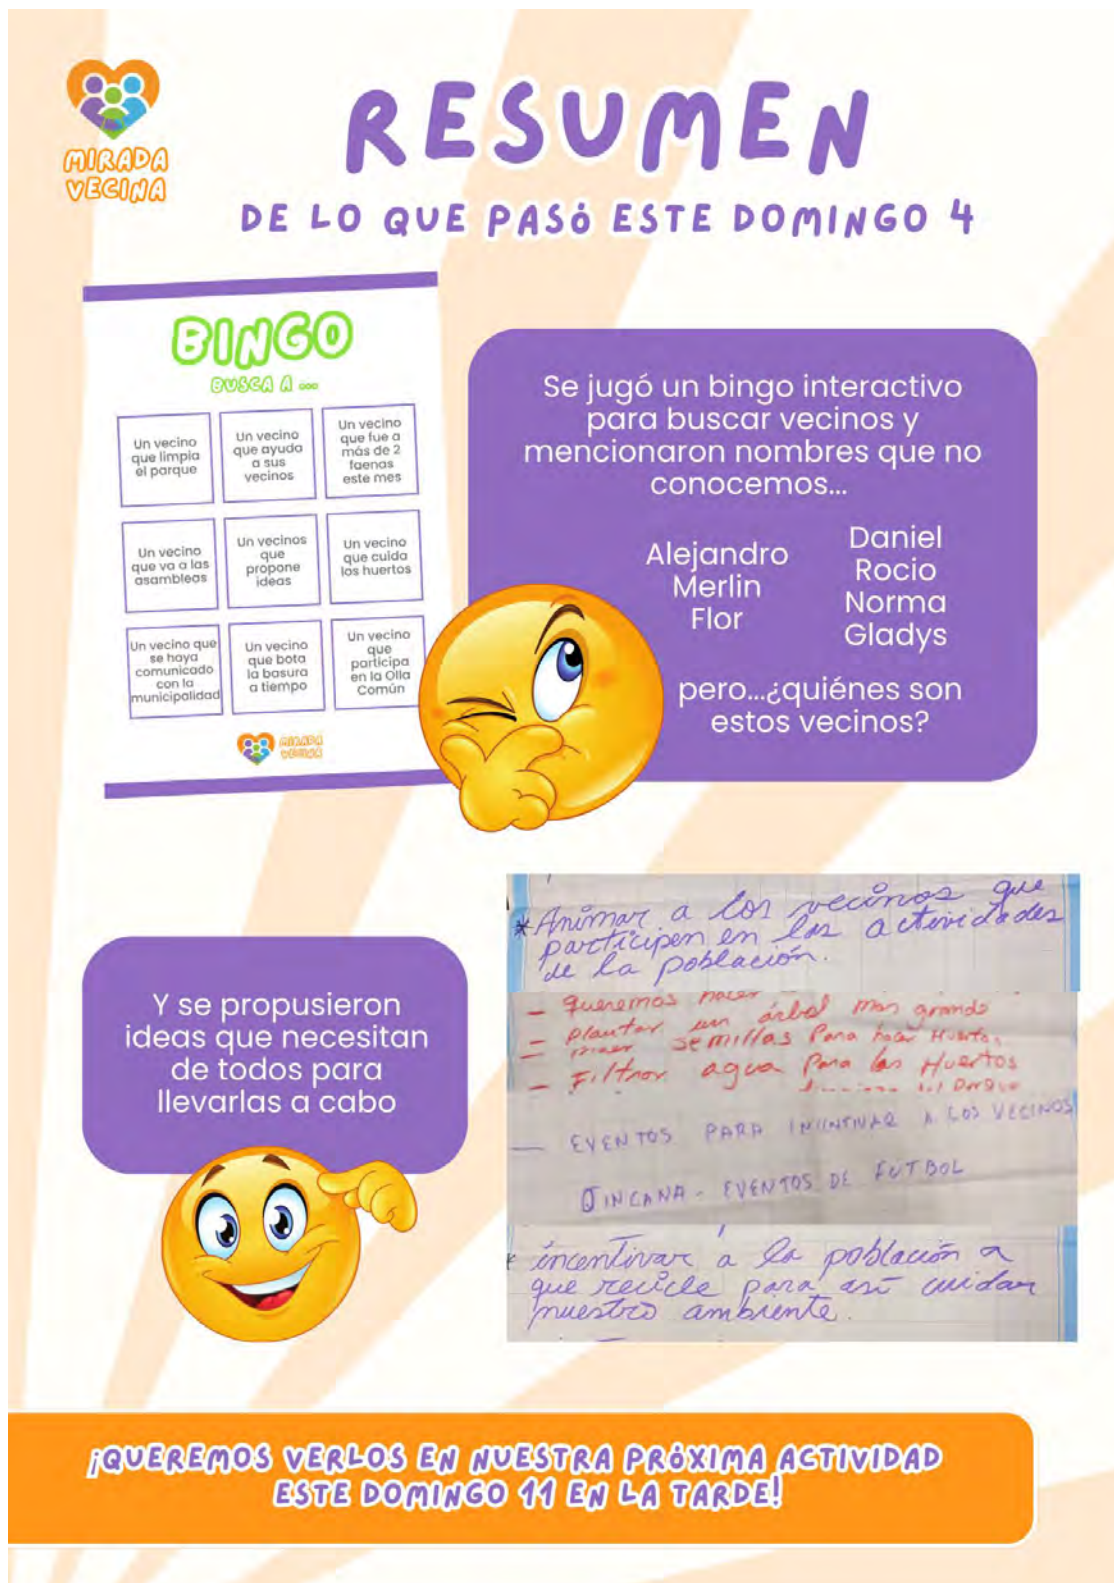 MIRADA
VECINA
RESUMEN
DE LO QUE PASÓ ESTE DOMINGO 4
BINGO
BUSCA A ...
Un vecino
que limpia
el parque
Un vecino
que ayuda
a sus
vecinos
Un vecino
que fue a
más de 2
faenas
este mes
Un vecino
que va a las
asambleas
Un vecinos
que
propone
ideas
Un vecino
que cuida
los huertos
Un vecino que
se haya
comunicado
con la
municipalidad
Un vecino
que bota
la basura
a tiempo
Un vecino
que
participa
en la Olla
Común
MIRADA
VECINA
Se jugó un bingo interactivo
para buscar vecinos y
mencionaron nombres que no
conocemos...
Alejandro
Merlin
Flor
Daniel
Rocio
Norma
Gladys
pero...¿quiénes son
estos vecinos?
Y se propusieron
ideas que necesitan
de todos para
llevarlas a cabo
* Animar a los vecinos que
participen en las actividades
de la población.
- queremos hacer
- plantar un árbol mas grande
- semillas Para hacer Huertos
- Filtrar agua Para los Huertos
— EVENTOS PARA INCENTIVAR A LOS VECINOS
JINCANA - EVENTOS DE FUTBOL
* incentivar a la población a
que recicle para así cuidar
nuestro ambiente.
¡QUEREMOS VERLOS EN NUESTRA PRÓXIMA ACTIVIDAD
ESTE DOMINGO 11 EN LA TARDE!